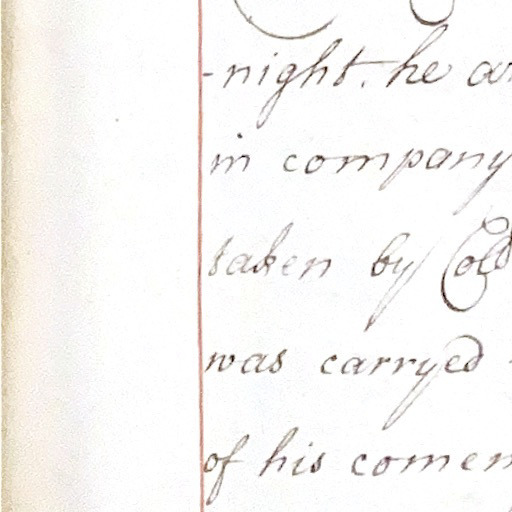 -night. he
in company
taken by Cold
was carryed
of his